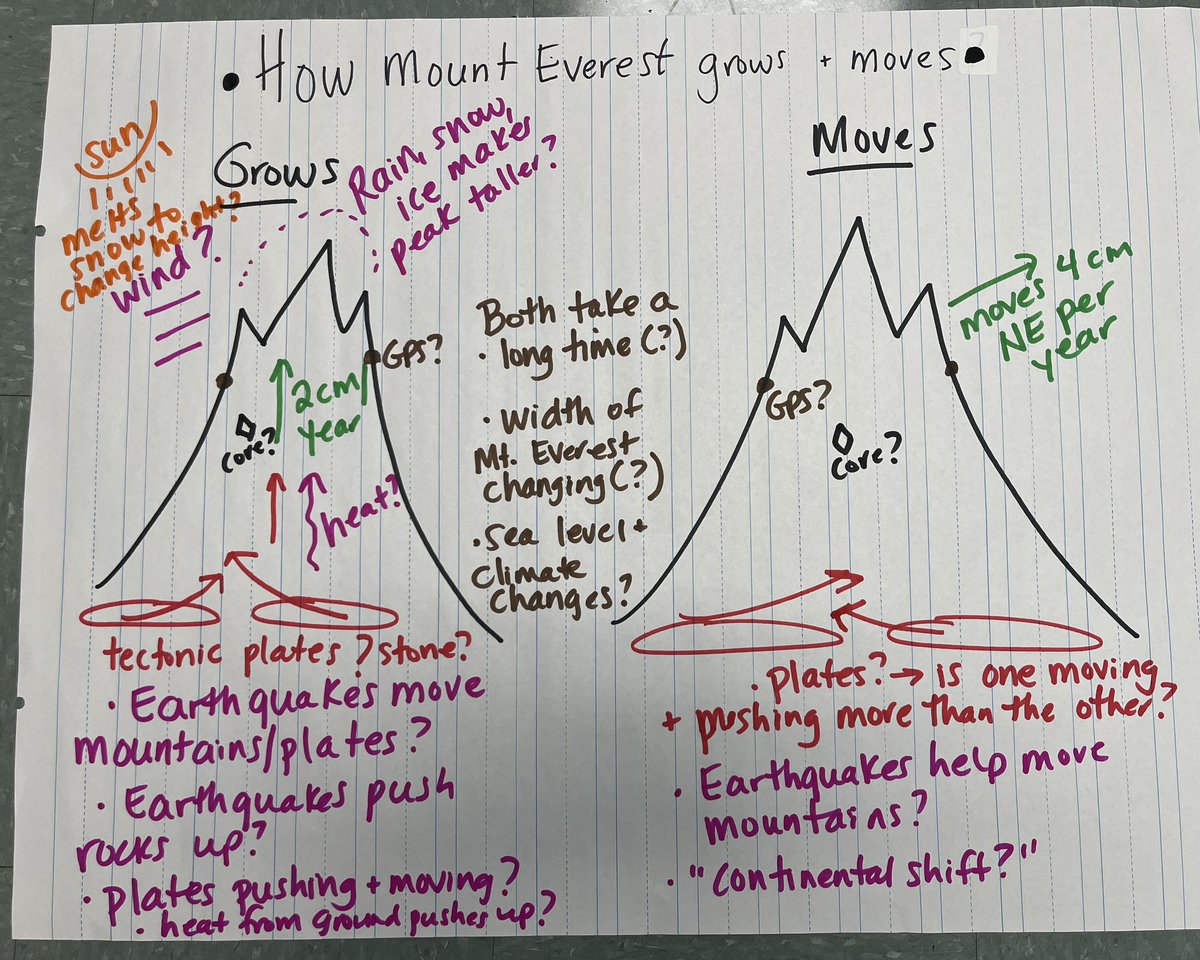 • How Mount Everest grows + moves •
Grows
sun
melts
snow to
change height?
wind?
Rain, snow,
ice makes
peak taller?
GPS?
2cm/
year
core?
heat?
tectonic plates ? stone?
• Earthquakes move
mountains/plates?
• Earthquakes push
rocks up?
• Plates pushing + moving?
• heat from ground pushes up?
Both take a
• long time (?)
• width of
Mt. Everest
changing (?)
• sea level +
climate
changes?
Moves
moves 4 cm
NE per
year
GPS?
core?
• Plates? → is one moving
+ pushing more than the other?
• Earthquakes help move
mountains?
• "continental shift?"